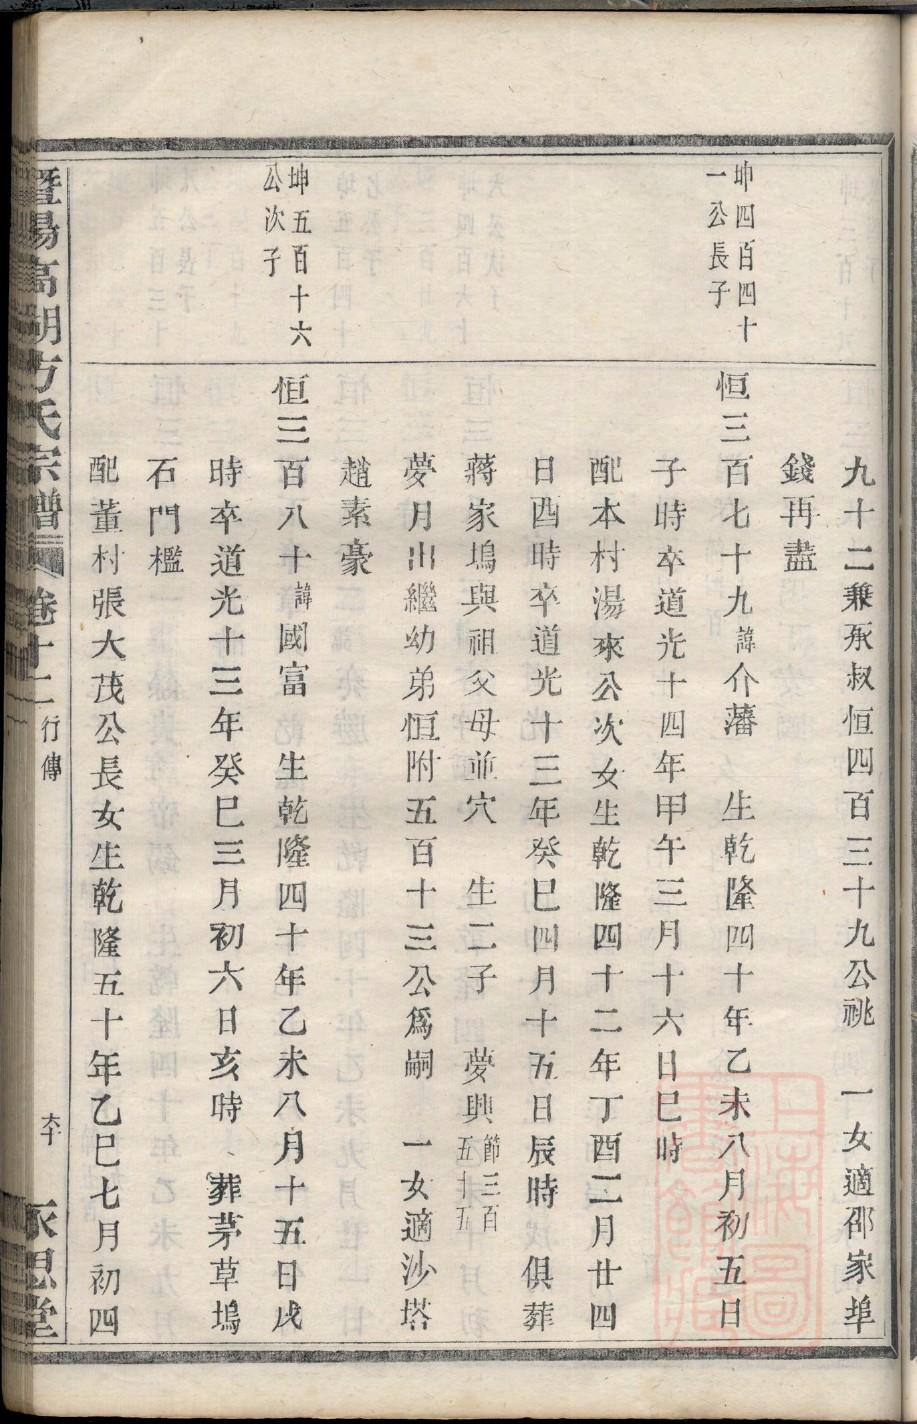 九十二兼承叔恒四百三十九公祧　一女適邵家埠
錢再盡
坤四百四十
一公長子
恒三百七十九諱介藩　生乾隆四十年乙未八月初五日
子時卒道光十四年甲午三月十六日巳時
配本村湯來公次女生乾隆四十二年丁酉二月廿四
日酉時卒道光十三年癸巳四月十五日辰時　俱葬
蔣家塢與祖父母並穴　生二子　夢興節三百五十五
夢月出繼幼弟恒附五百十三公爲嗣　一女適沙塔
趙素豪
坤五百十六
公次子
恒三百八十諱國富　生乾隆四十年乙未八月十五日戌
時卒道光十三年癸巳三月初六日亥時　葬茅草塢
石門檻
配董村張大茂公長女生乾隆五十年乙巳七月初四
暨陽高湖方氏宗譜　卷十二　行傳　永思堂